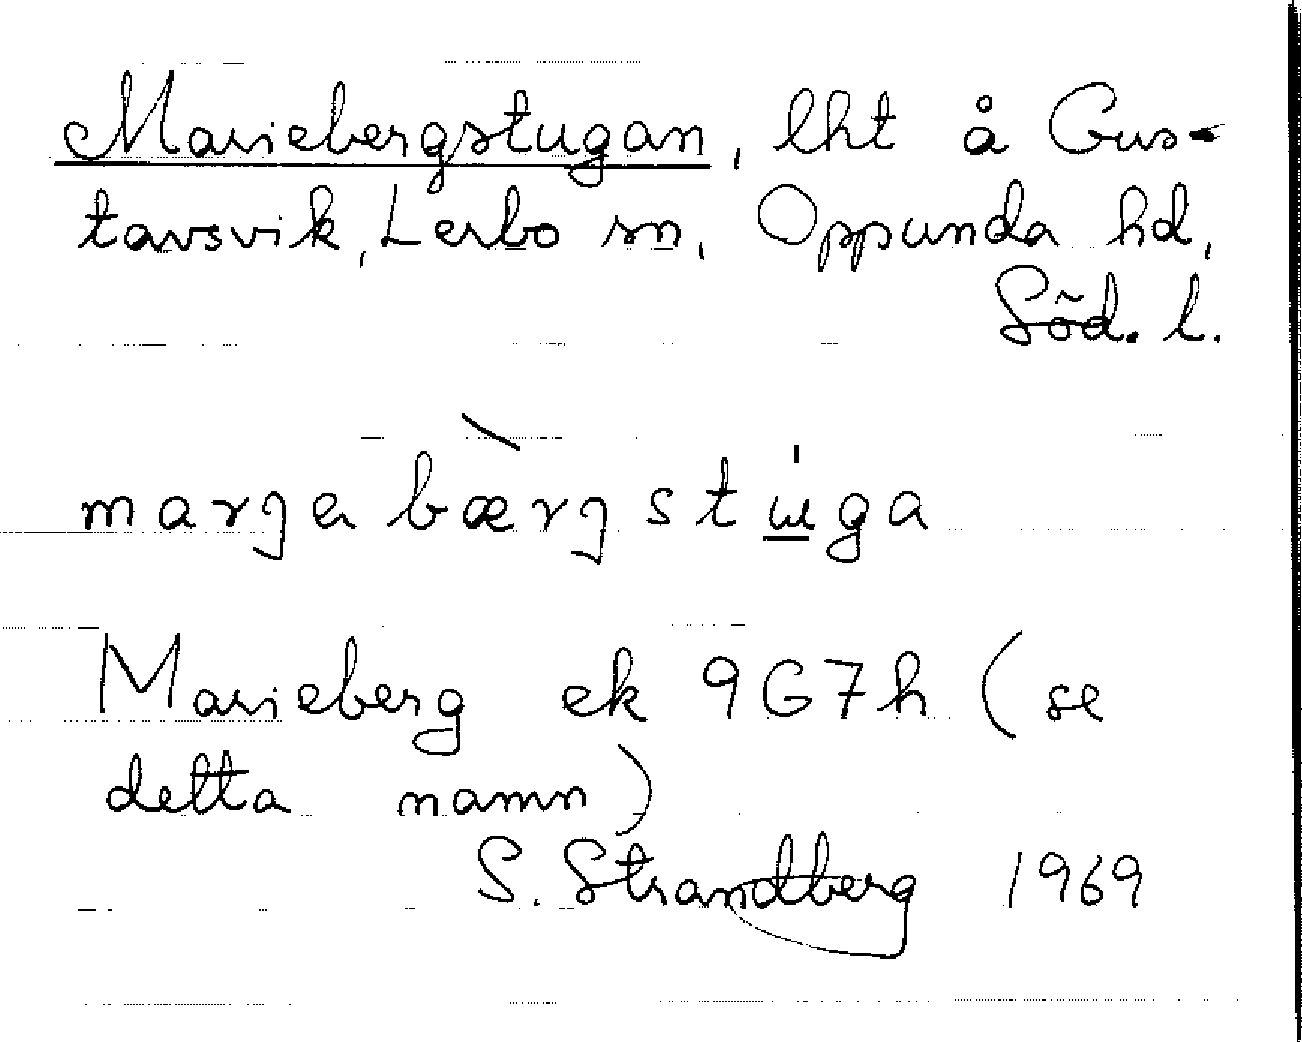 Mariebergstugan, lht å Gus-
tavsvik, Lerbo sn, Oppunda hd,
Söd. l.
marjabæ̀rjstú̲ga
Marieberg ek 9G7h (se
detta namn)
S. Strandberg 1969